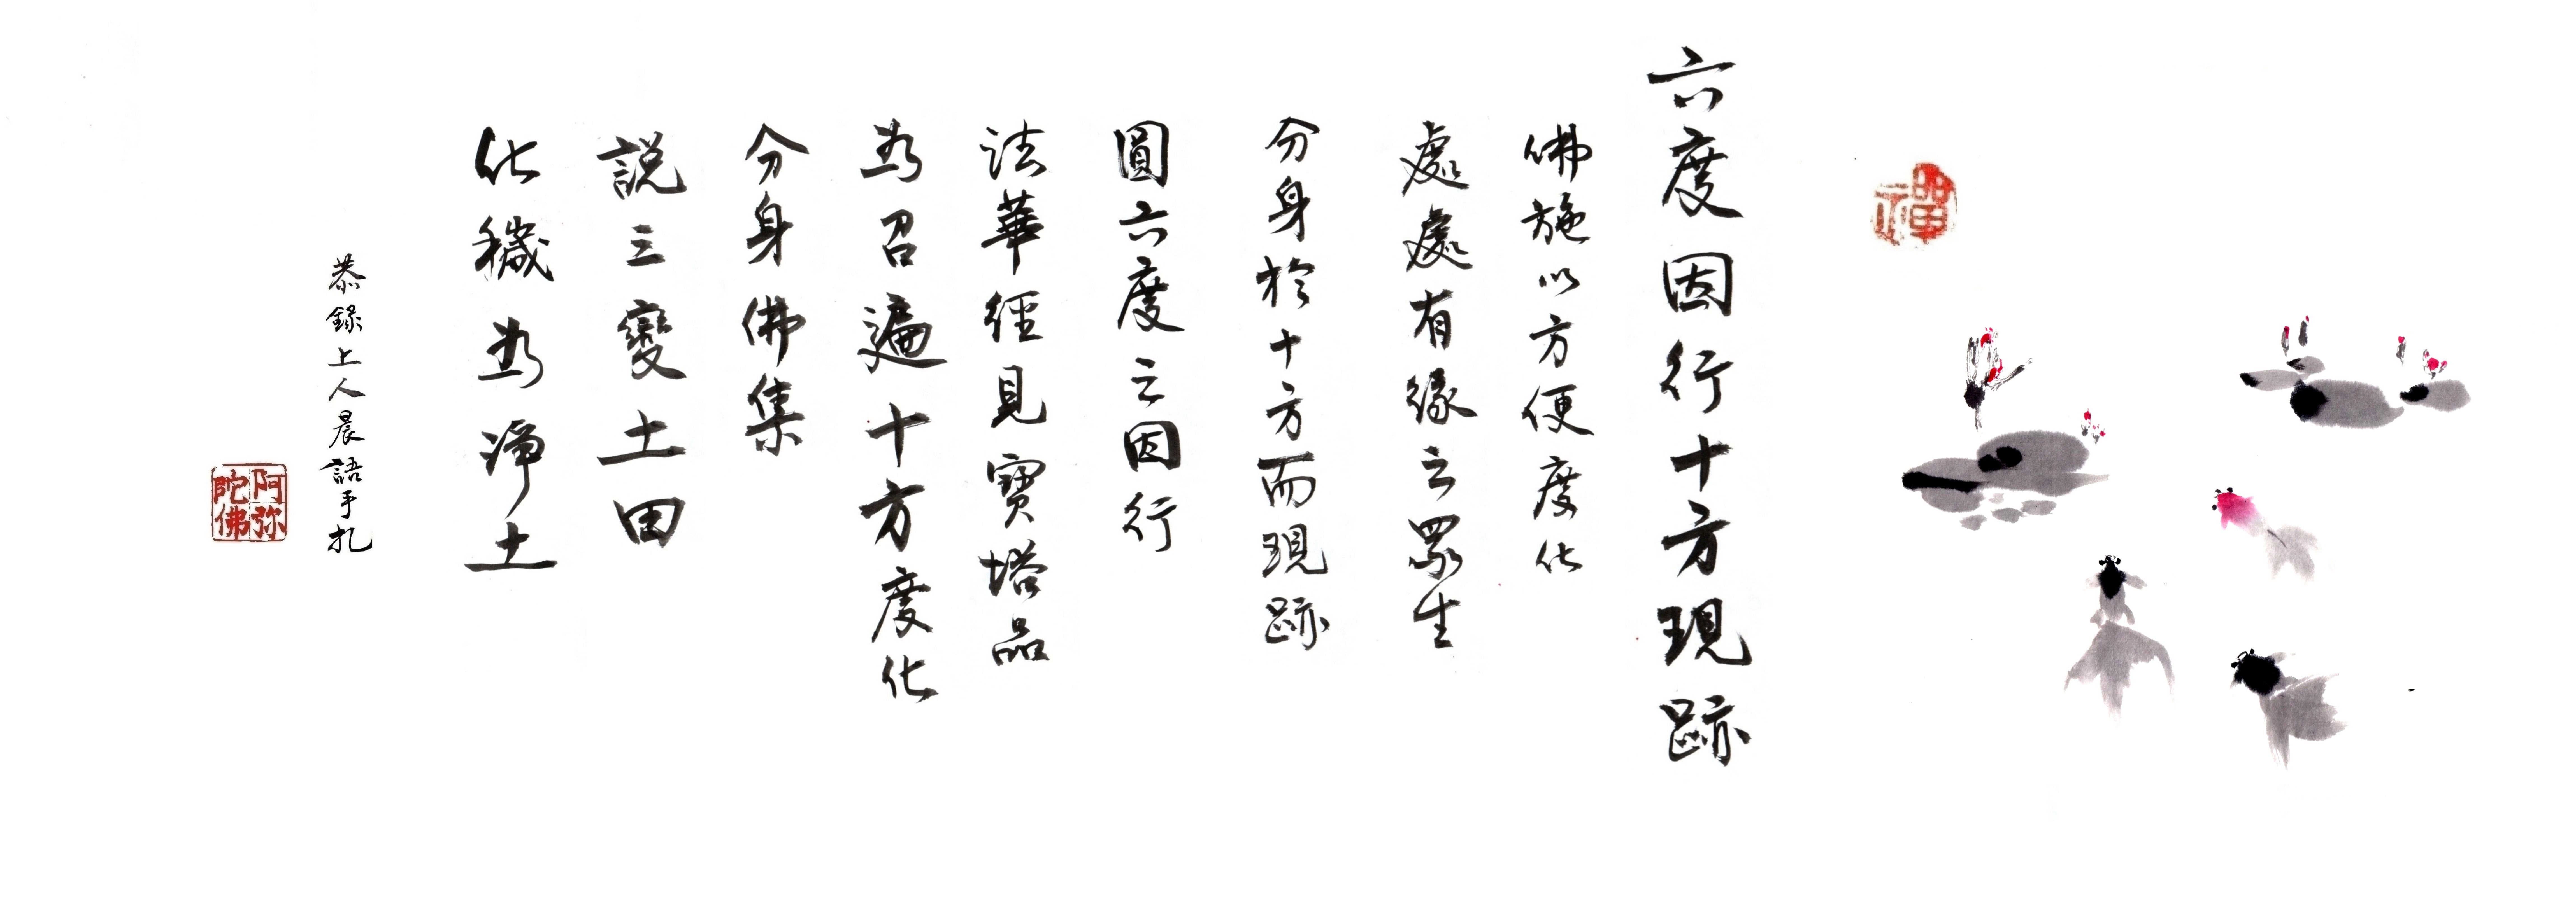 禪
六度因行十方現跡
佛施以方便度化
處處有緣之眾生
分身於十方而現跡
圓六度之因行
法華經見寶塔品
為召遍十方度化
分身佛集
說三變土田
化穢為淨土
恭錄上人晨語手札
阿弥
陀佛